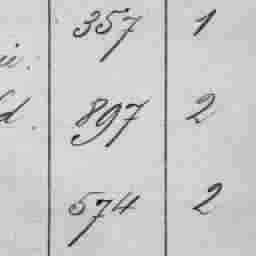 357 1
897 2
574 2